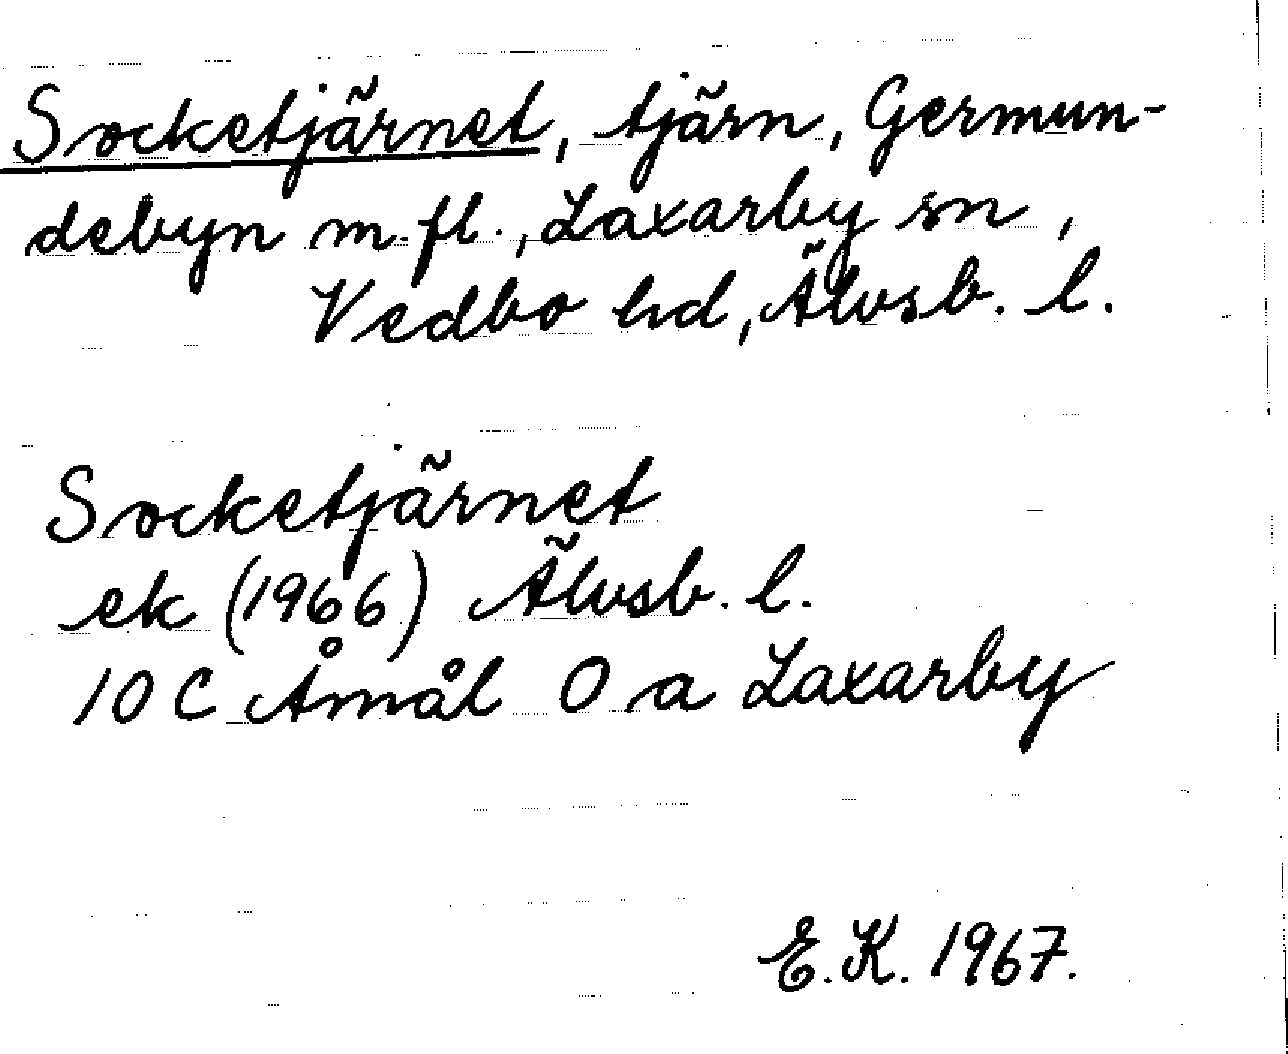 Socketjärnet, tjärn, Germun-
debyn m.fl., Laxarby sn,
Vedbo hd, Älvsb. l.
Socketjärnet
ek (1966) Älvsb. l.
10 C Åmål O a Laxarby
E.K. 1967.